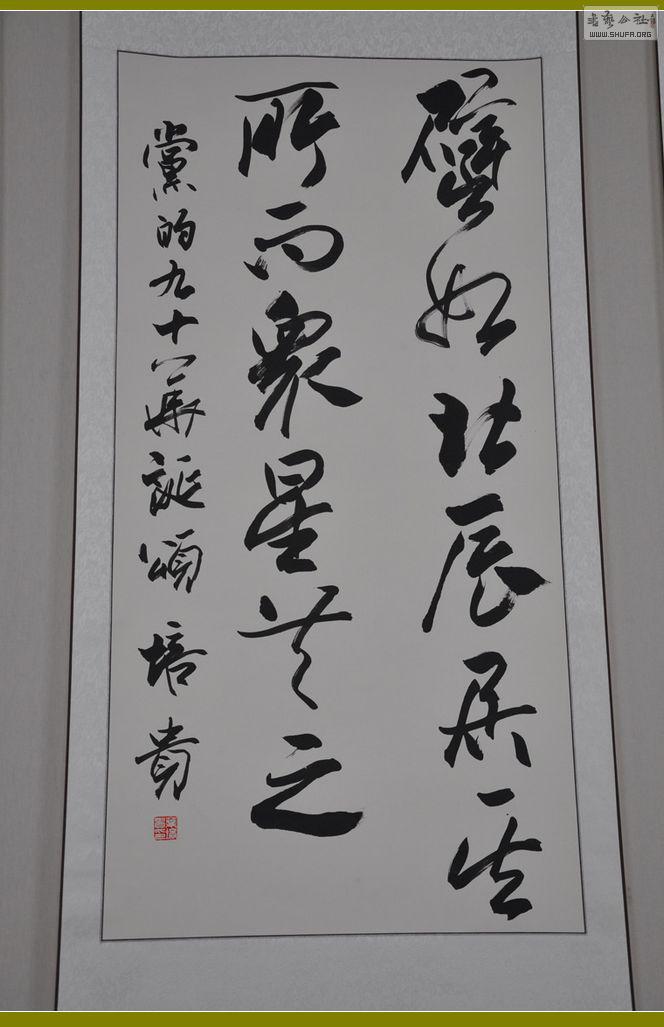 譬如北辰居其
所而衆星共之
黨的九十華誕頌 培貴
书艺公社
WWW.SHUFA.ORG